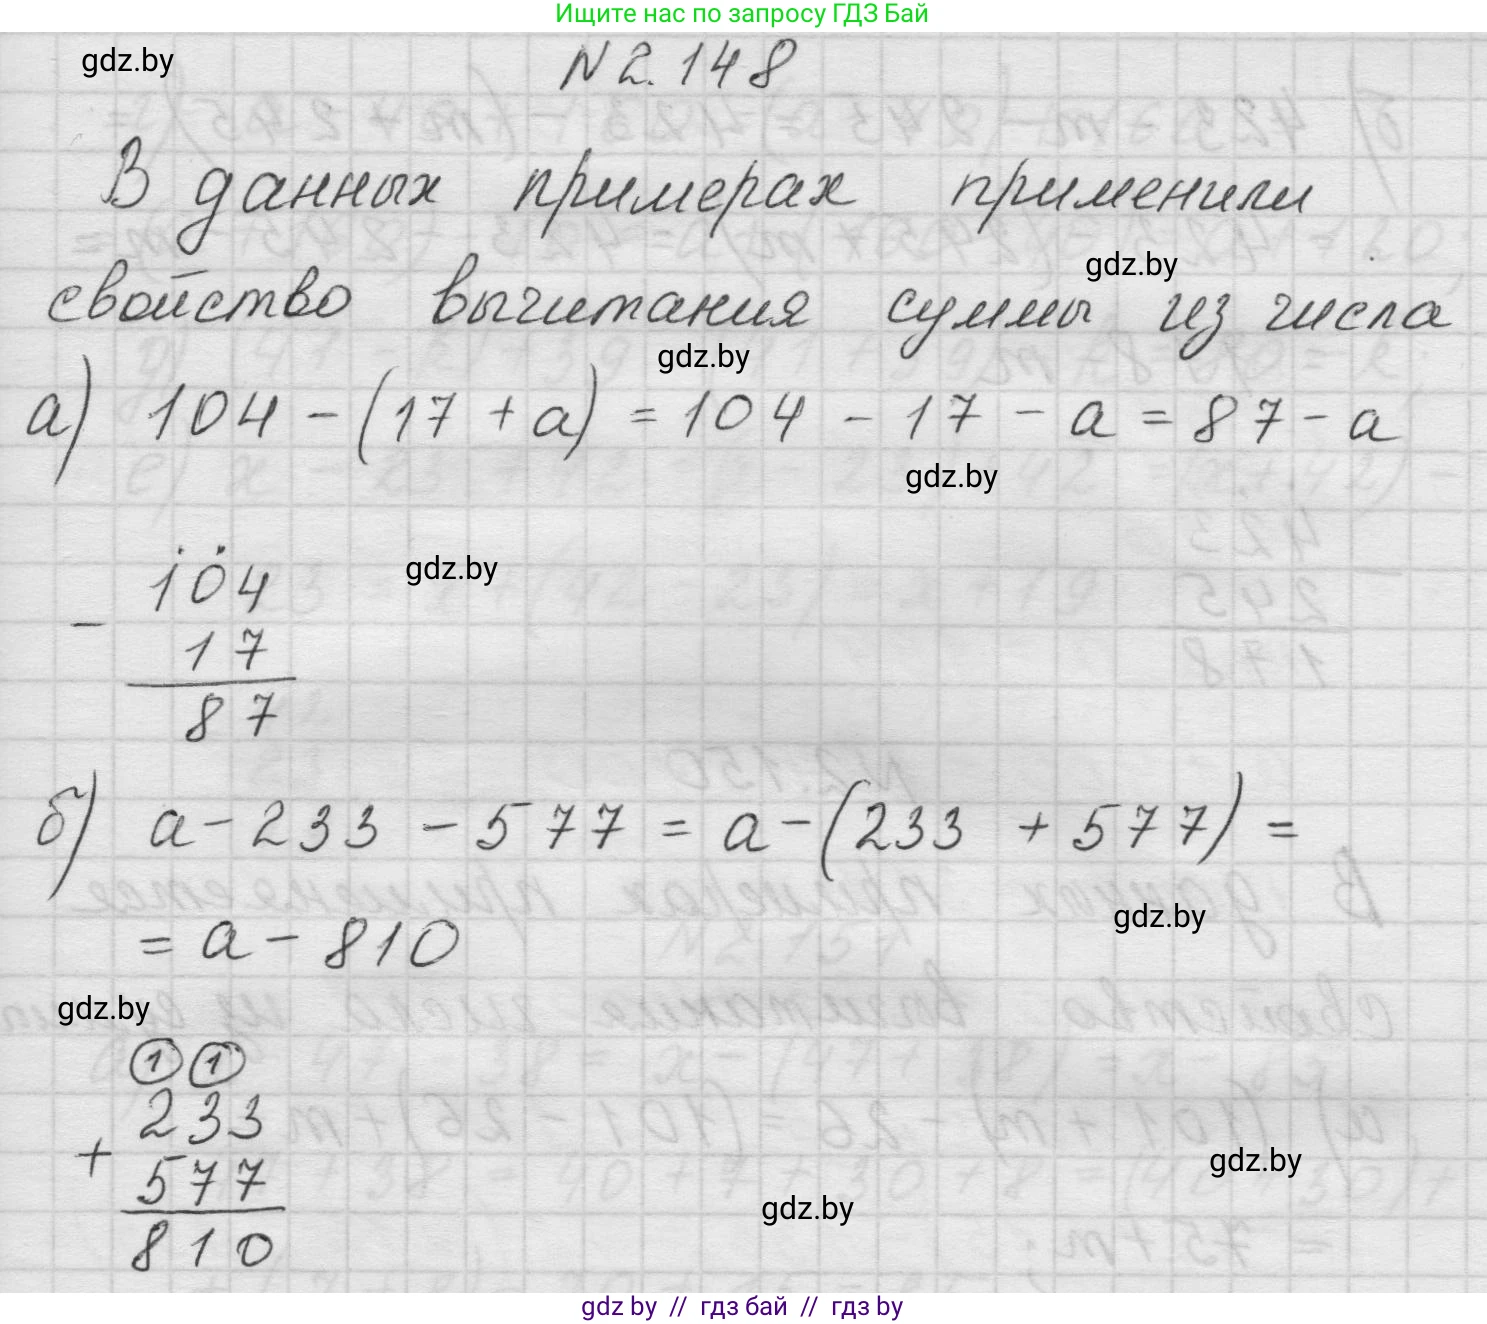 Ищите нас по запросу ГДЗ Бай
gdz.by
N 2.148
В данных примерах применили
gdz.by
свойство вычитания суммы из числа
gdz.by
а) 104 - (17 + а) = 104 - 17 - а = 87 - а
gdz.by
gdz.by
104
-
17
87
б) а - 233 - 577 = а - (233 + 577) =
gdz.by
= а - 810
gdz.by
1 1
233
+
577
gdz.by
gdz.by
810
gdz by // гдз бай // гдз by